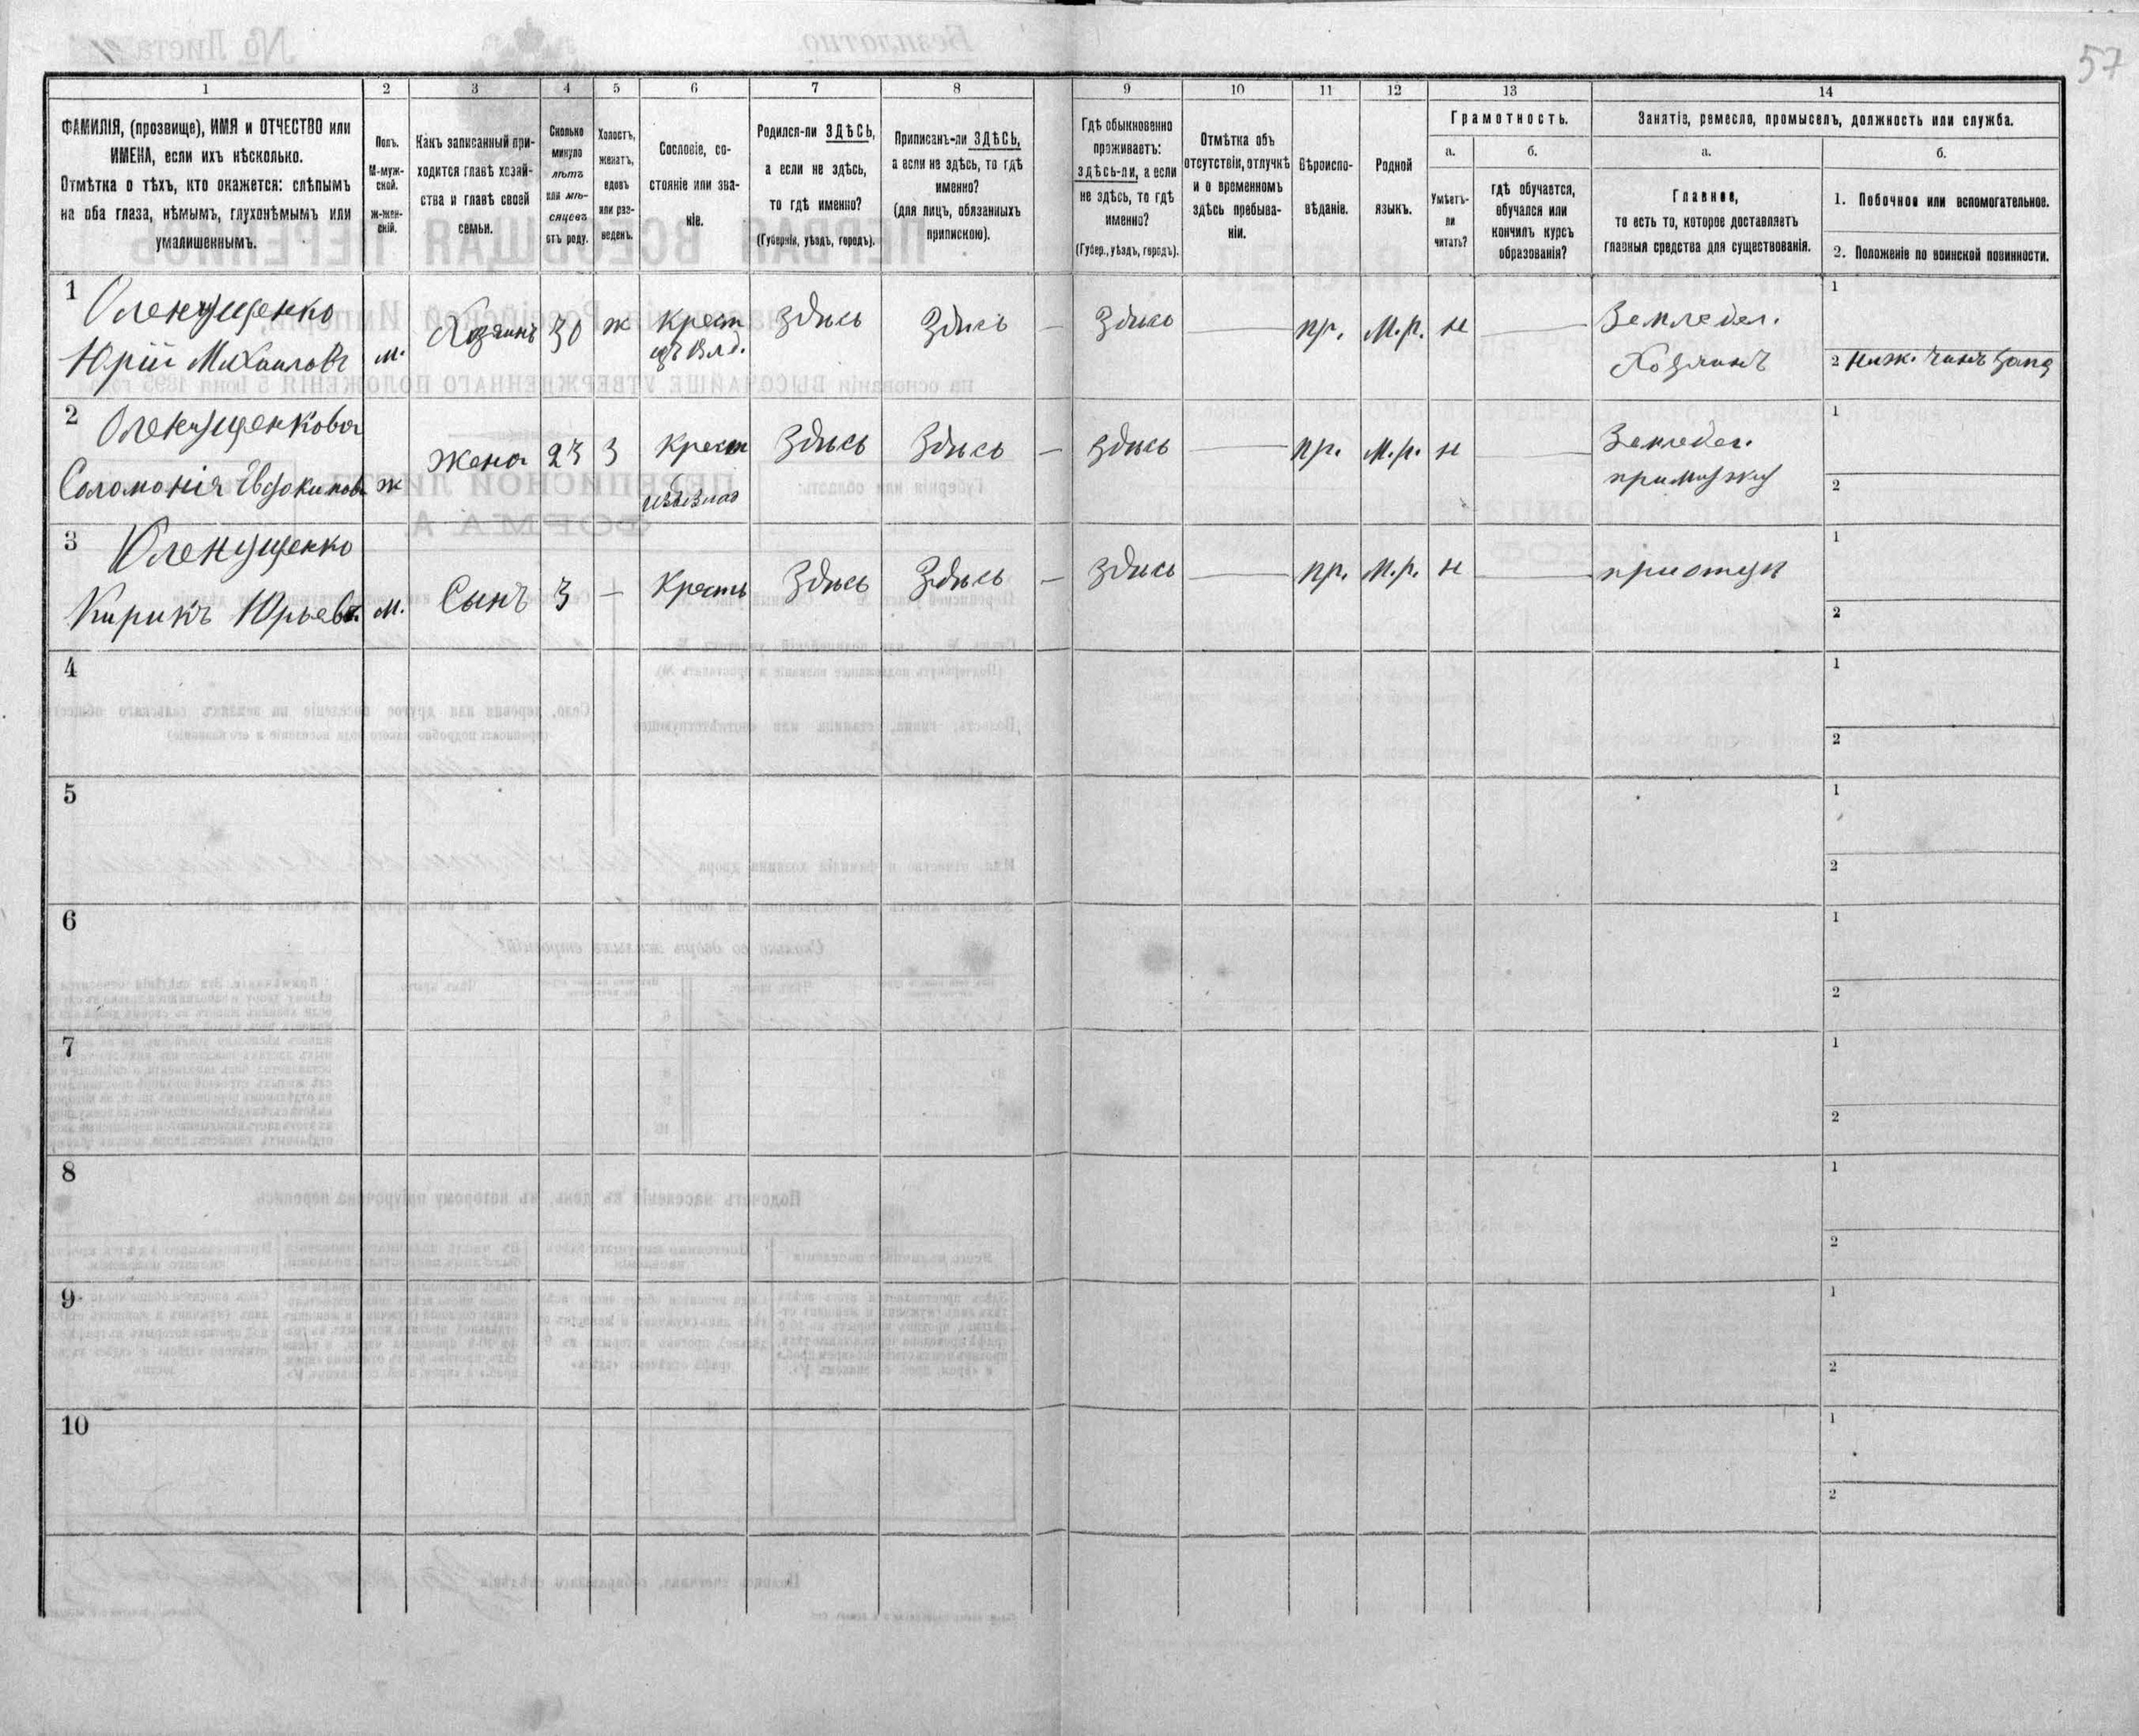 57
1
2
3
4
5
6
7
8
9
10
11
12
13
14
ФАМИЛІЯ, (прозвище), ИМЯ и ОТЧЕСТВО или
ИМЕНА, если ихъ нѣсколько.
Отмѣтка о тѣхъ, кто окажется: слѣпымъ
на оба глаза, нѣмымъ, глухонѣмымъ или
умалишеннымъ.
Полъ.
М-муж-
ской.
ж-жен-
скій.
Какъ записанный при-
ходится главѣ хозяй-
ства и главѣ своей
семьи.
Сколько
минуло
лѣтъ
или мѣ-
сяцевъ
отъ роду.
Холостъ,
женатъ,
вдовъ
или раз-
веденъ.
Сословіе, со-
стояніе или зва-
ніе.
Родился-ли ЗДѢСЬ,
а если не здѣсь,
то гдѣ именно?
(Губернія, уѣздъ, городъ).
Приписанъ-ли ЗДѢСЬ,
а если не здѣсь, то гдѣ
именно?
(для лицъ, обязанныхъ
припискою).
Гдѣ обыкновенно
проживаетъ:
здѣсь-ли, а если
не здѣсь, то гдѣ
именно?
(Губер., уѣздъ, городъ).
Отмѣтка объ
отсутствіи, отлучкѣ
и о временномъ
здѣсь пребыва-
ніи.
Вѣроиспо-
вѣданіе.
Родной
языкъ.
Грамотность.
а.
Умѣетъ-
ли
читать?
б.
гдѣ обучается,
обучался или
кончилъ курсъ
образованія?
Занятіе, ремесло, промыселъ, должность или служба.
а.
Главное,
то есть то, которое доставляетъ
главныя средства для существованія.
б.
1. Побочное или вспомогательное.
2. Положеніе по воинской повинности.
1
Оленущенко
Юрій Михаиловъ м. Хозяинъ 30 ж Крест Здѣсь Здѣсь — Здѣсь — пр. М.р. н — Земледел.
Хозяинъ
1
2 Ниж. чинъ запа
2
Оленущенкова
Соломонія Евдокимов ж Жена 23 З Крест Здѣсь Здѣсь — Здѣсь — пр. М.р. н — Земледел.
примужу
1
2
3
Оленущенко
Кирикъ Юрьевъ м. Сынъ 3 — Кресть Здѣсь Здѣсь — Здѣсь — пр. М.р. н — приотцу
1
2
4
1
2
5
1
2
6
1
2
7
1
2
8
1
2
9
1
2
10
1
2